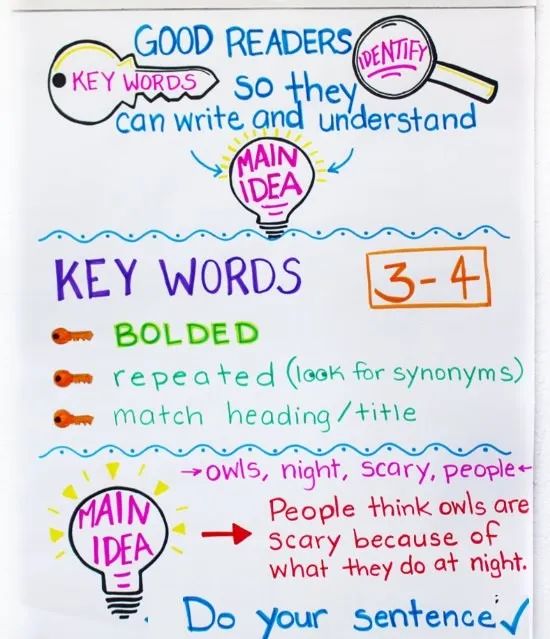 GOOD READERS IDENTIFY
KEY WORDS so they
can write and understand
MAIN
IDEA
KEY WORDS 3-4
BOLDED
repeated (look for synonyms)
match heading/title
owls, night, scary, people
MAIN
IDEA
People think owls are
scary because of
what they do at night.
Do your sentence ✓